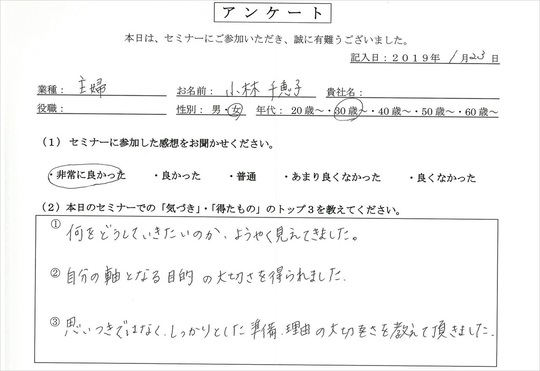 アンケート
本日は、セミナーにご参加いただき、誠に有難うございました。
記入日：２０１９年 1月23日
業種： 主婦 お名前： 小林 千恵子 貴社名：
役職： 性別： 男・女 年代： 20歳～・30歳～・40歳～・50歳～・60歳～
（１）セミナーに参加した感想をお聞かせください。
・非常に良かった ・良かった ・普通 ・あまり良くなかった ・良くなかった
（２）本日のセミナーでの「気づき」・「得たもの」のトップ３を教えてください。
① 何をどうしていきたいのか、ようやく見えてきました。
② 自分の軸となる目的の大切さを得られました.
③ 思いつきではなく、しっかりとした準備、理由の大切さを教えて頂きました.